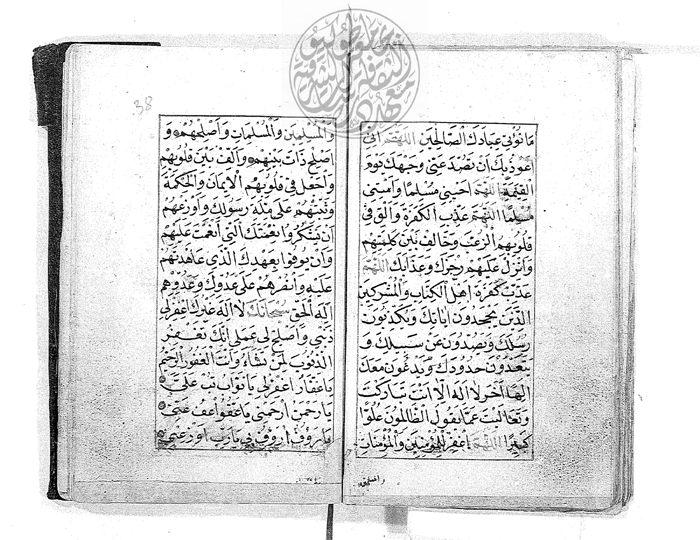 ما تؤتي عبادك الصالحين اللهم اني
اعوذ بك ان تصد عني وجهك يوم
القيمة اللهم احيني مسلما وامتني
مسلما اللهم عذب الكفرة والق في
قلوبهم الرعب وخالف بين كلمتهم
وانزل عليهم رجزك وعذابك اللهم
عذب كفرة اهل الكتاب والمشركين
الذين يجحدون اياتك ويكذبون
رسلك ويصدون عن سبيلك و
يتعدون حدودك ويدعون معك
الها آخر لا اله الا انت تباركت
وتعاليت عما يقول الظالمون علوا
كبيرا اللهم اغفر للمؤمنين والمؤمنات
38
والمسلمين والمسلمات واصلحهم و
اصلح ذات بينهم والف بين قلوبهم
واجعل في قلوبهم الايمان والحكمة
وثبتهم على ملة رسولك واوزعهم
ان يشكروا نعمتك التي انعمت عليهم
وان يوفوا بعهدك الذي عاهدتهم
عليه وانصرهم على عدوك وعدوهم
اله الحق سبحانك لا اله غيرك اغفر لي
ذنبي واصلح لي عملي انك تغفر
الذنوب لمن تشاء وانت الغفور الرحيم
يا غفار اغفر لي يا تواب تب علي
يا رحمن ارحمني يا عفو اعف عني
يا رؤف ارؤف بي يا رب اوزعني